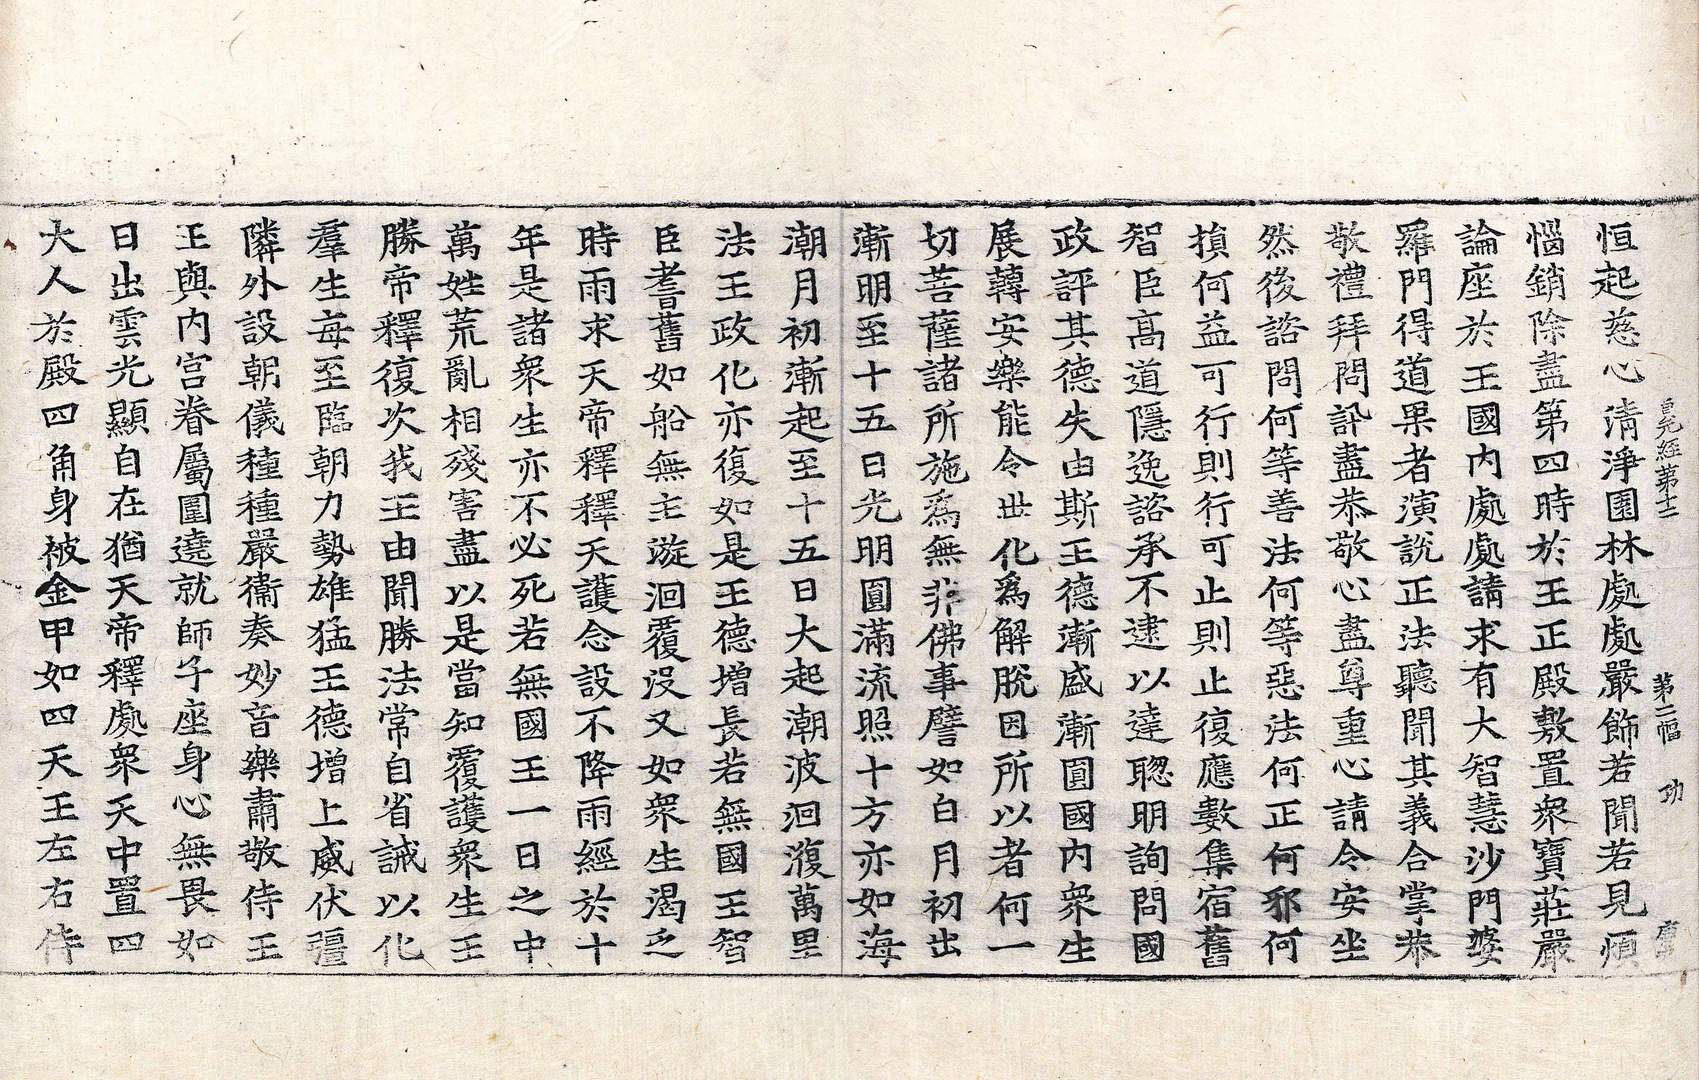 恒起慈心清淨園林處處嚴飾若聞若見煩
惱銷除盡第四時於王正殿敷置衆寶莊嚴
論座於王國內處處請求有大智慧沙門婆
羅門得道果者演說正法聽聞其義合掌恭
敬禮拜問訊盡恭敬心盡尊重心請令安坐
然後諮問何等善法何等惡法何正何邪何
損何益可行則行可止則止復應數集宿舊
智臣髙道隱逸諮承不逮以達聦明詢問國
政評其德失由斯王德漸盛漸圓國內衆生
展轉安樂能令世化爲解脫因所以者何一
切菩薩諸所施爲無非佛事譬如白月初出
漸明至十五日光明圓滿流照十方亦如海
潮月初漸起至十五日大起潮波洄澓萬里
法王政化亦復如是王德增長若無國王智
臣耆舊如船無主漩洄覆沒又如衆生渴乏
時雨求天帝釋釋天護念設不降雨經於十
年是諸衆生亦不必死若無國王一日之中
萬姓荒亂相殘害盡以是當知覆護衆生王
勝帝釋復次我王由聞勝法常自省誡以化
羣生每至臨朝力勢雄猛王德增上威伏彊
隣外設朝儀種種嚴衞奏妙音樂肅敬侍王
王與內宮眷屬圍遶就師子座身心無畏如
日出雲光顯自在猶天帝釋處衆天中置四
大人於殿四角身被金甲如四天王左右侍
第二幅 功